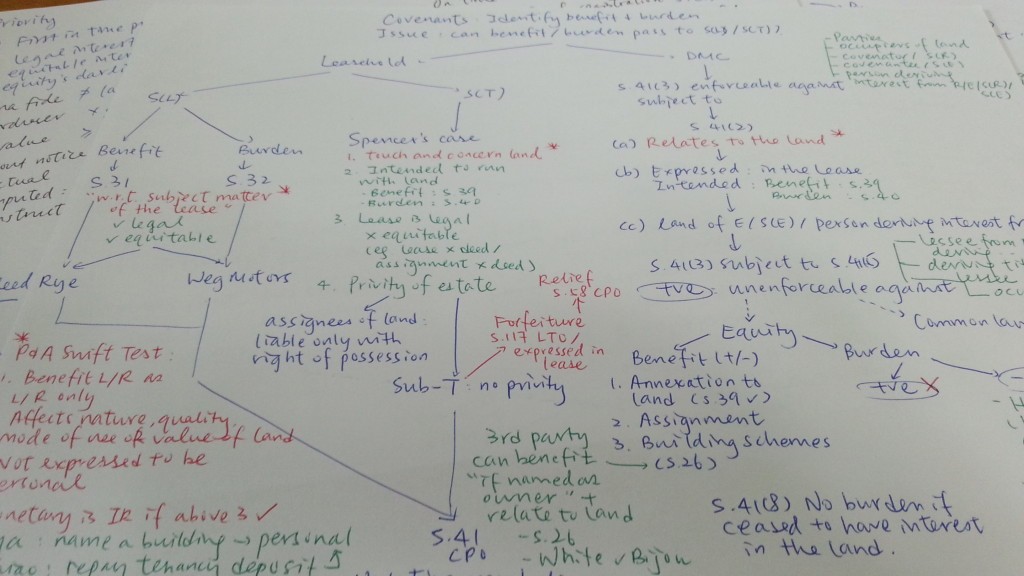 Covenants: Identify benefit + burden
Issue: can benefit/burden pass to S(L)/S(T)?
Leasehold
DMC
S(L)
S(T)
Benefit
Burden
S.31
S.32
"w.r.t. subject matter *
of the lease"
✓ legal
✓ equitable
Rye
Weg Motors
Spencer's case
1. Touch and concern land *
2. Intended to run
with land
- Benefit: S.39
- Burden: S.40
3. Lease is legal
x equitable
(eg lease x deed/
assignment x deed)
4. Privity of estate
assignees of land:
liable only with
right of possession
Relief
S.58 CPO
Forfeiture
S.117 LTO/
expressed in
lease
Sub-T: no privity
3rd party
can benefit
"if named as
owner" +
relate to land
- S.26
- White v Bijou
S.41
CPO
Parties
- occupiers of land
- covenator/S(R)
- covenantee/S(E)
- person deriving
interest from R/E/S(R)/
S(E)
S.41(3) enforceable against
subject to
S.41(2)
(a) Relates to the land *
(b) Expressed: in the lease
Intended: Benefit: S.39
Burden: S.40
(c) land of E/S(E)/person deriving interest
S.41(3) subject to S.41(5)
+ve: unenforceable against
lessee from
deriving
Lessee
Common law
Equity
Benefit (+/-)
Burden
+ve x
1. Annexation to
land (S.39 ✓)
2. Assignment
3. Building schemes
(S.26)
S.41(8) No burden if
ceased to have interest
in the land.
*
P&A Swift Test:
1. Benefit L/R as
L/R only
Affects nature, quality,
mode of use or value of land
Not expressed to be
is IR if above 3 ✓
: name a building → personal
: repay tenancy deposit
First in time
legal interest
equitable
equity's
value
notice